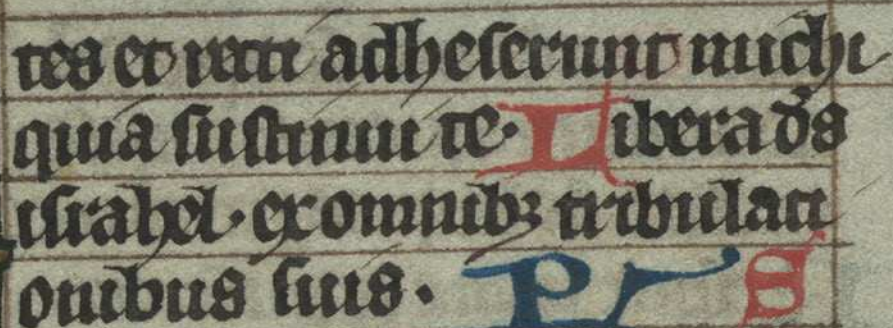 tes et recti adheserunt michi
quia sustinui te. Libera ds
israhel. ex omnib; tribulati
onibus suis. P S